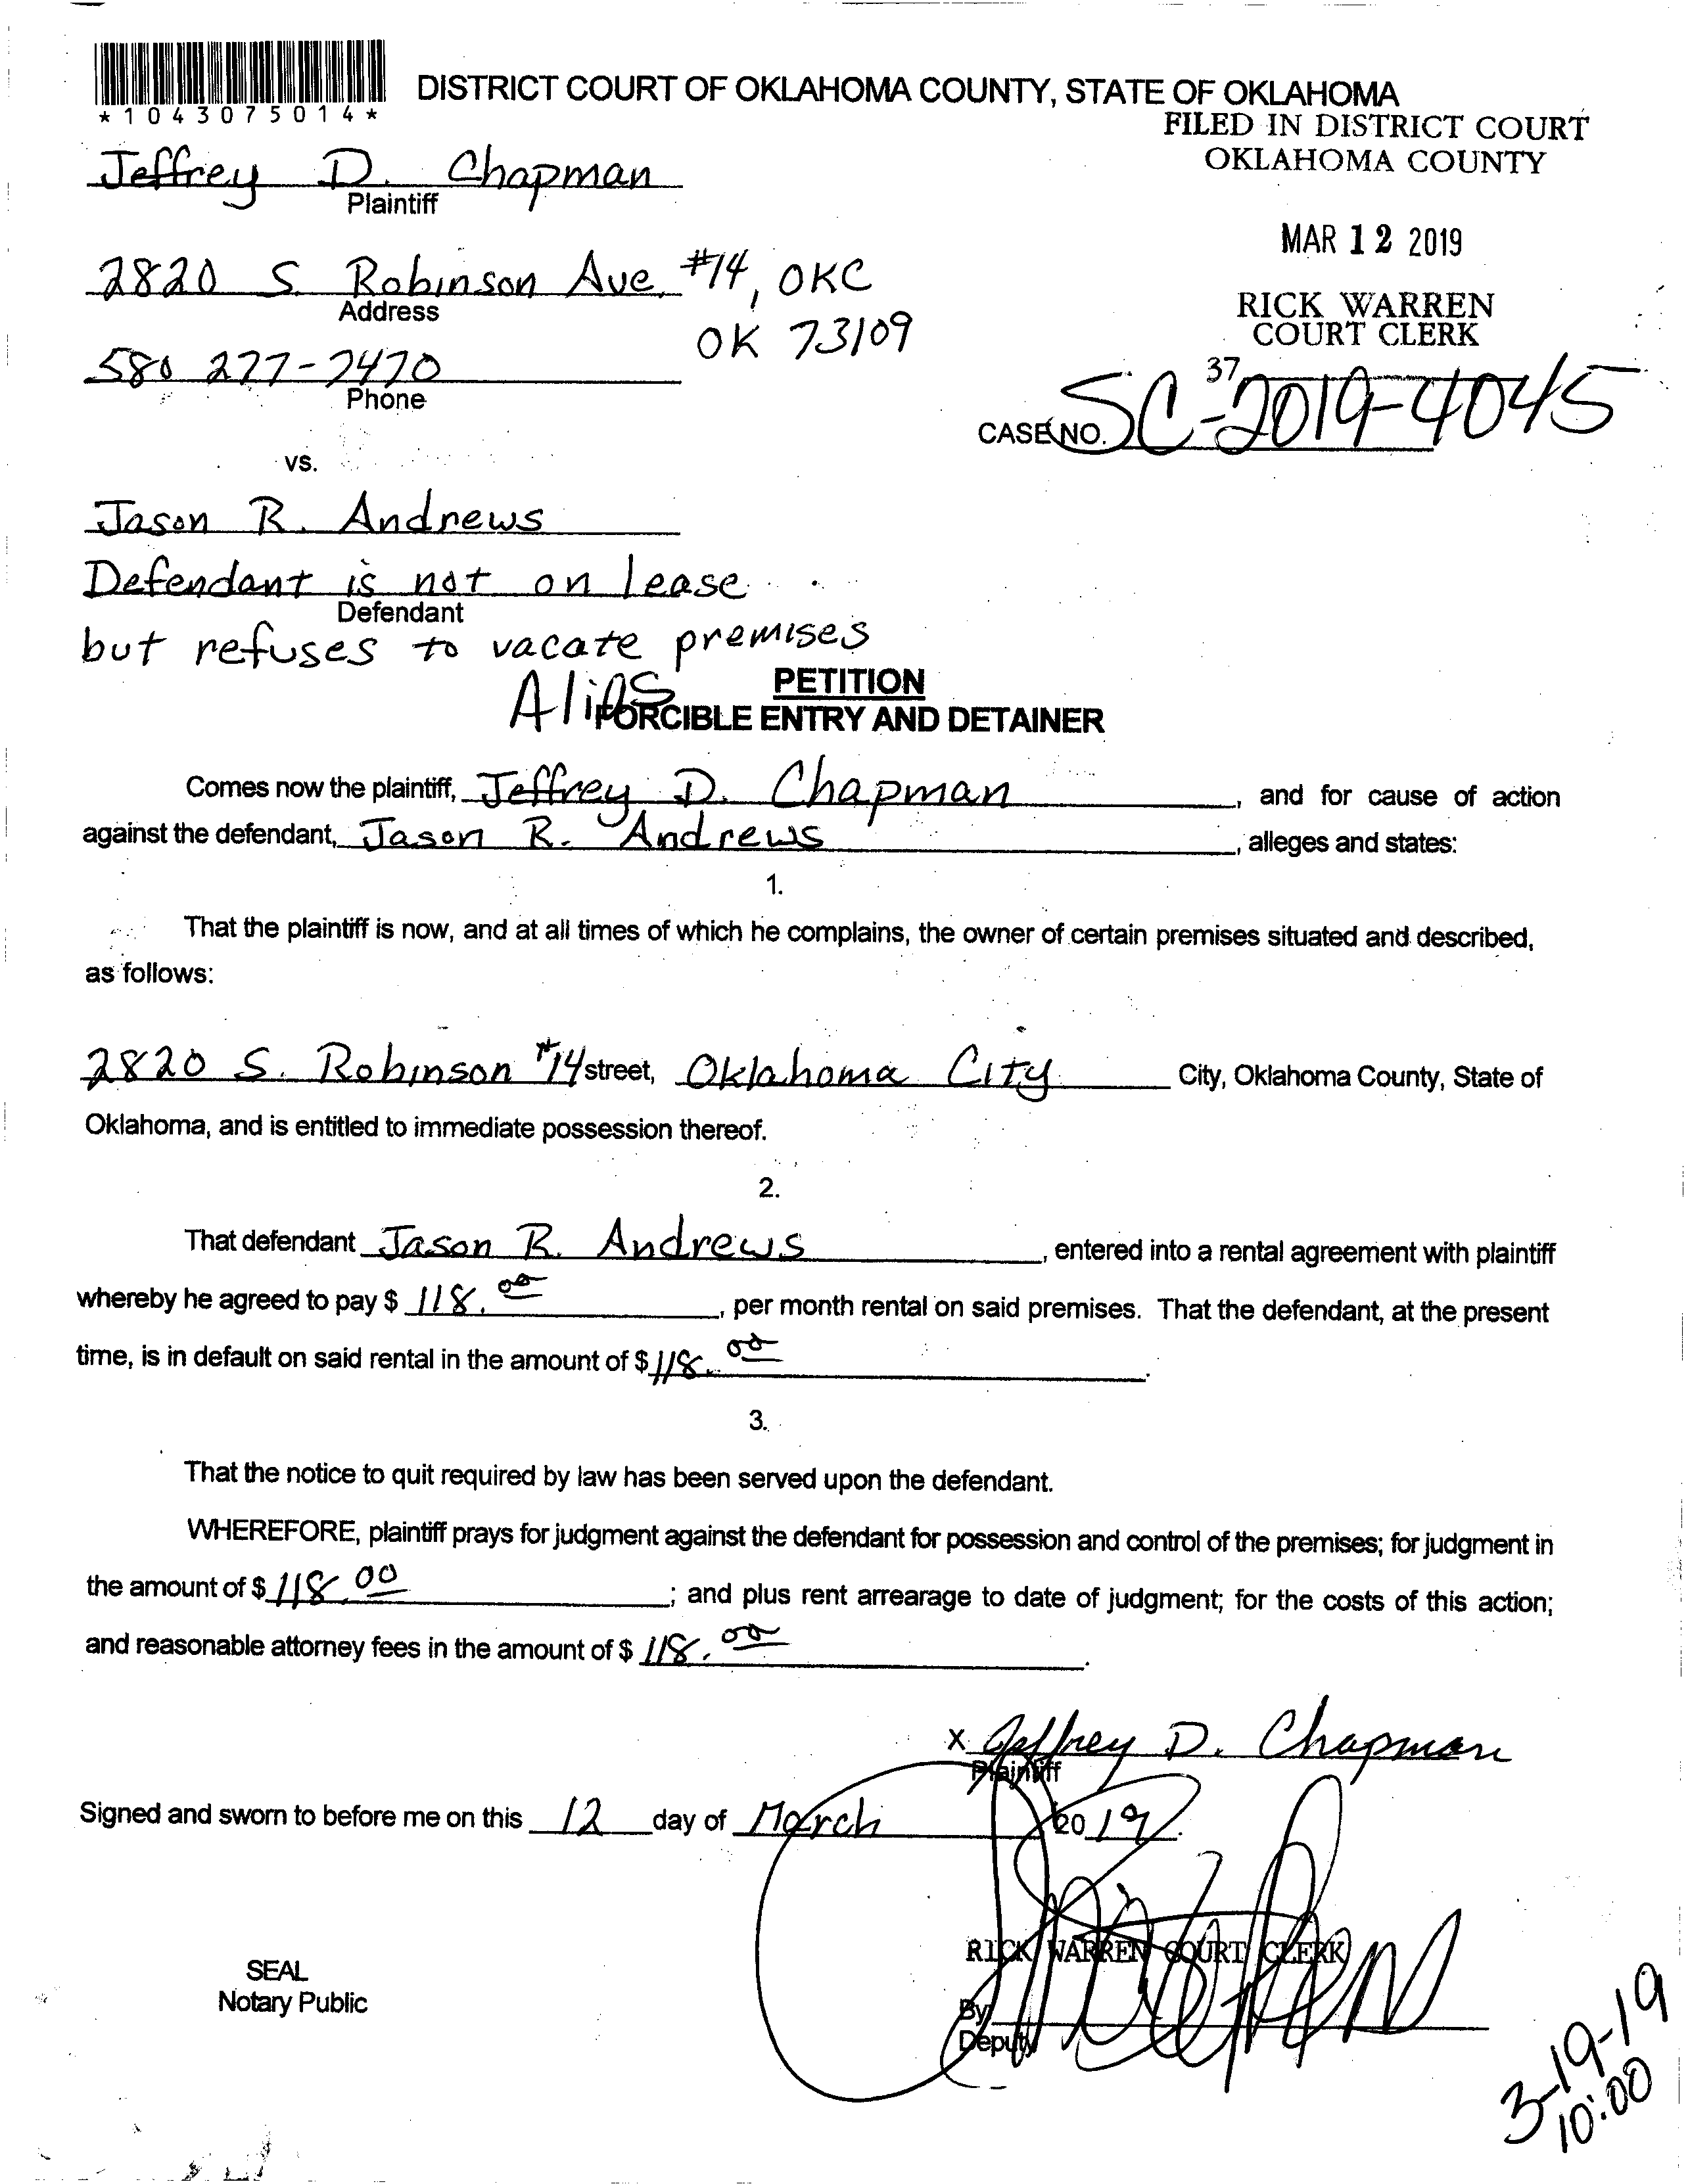 DISTRICT COURT OF OKLAHOMA COUNTY, STATE OF OKLAHOMA
*1043075014*
FILED IN DISTRICT COURT
OKLAHOMA COUNTY
Jeffrey D. Chapman
Plaintiff
MAR 12 2019
2820 S. Robinson Ave. #14, OKC
Address
OK 73109
RICK WARREN
COURT CLERK
580 277-7470
Phone
37
CASE NO. SC-2019-4045
vs.
Jason R. Andrews
Defendant is not on lease
Defendant
but refuses to vacate premises
PETITION
Alias FORCIBLE ENTRY AND DETAINER
Comes now the plaintiff, Jeffrey D. Chapman, and for cause of action
against the defendant, Jason R. Andrews, alleges and states:
1.
That the plaintiff is now, and at all times of which he complains, the owner of certain premises situated and described,
as follows:
2820 S. Robinson #14 street, Oklahoma City City, Oklahoma County, State of
Oklahoma, and is entitled to immediate possession thereof.
2.
That defendant Jason R. Andrews, entered into a rental agreement with plaintiff
whereby he agreed to pay $ 118.00, per month rental on said premises. That the defendant, at the present
time, is in default on said rental in the amount of $ 118.00.
3.
That the notice to quit required by law has been served upon the defendant.
WHEREFORE, plaintiff prays for judgment against the defendant for possession and control of the premises; for judgment in
the amount of $ 118.00; and plus rent arrearage to date of judgment; for the costs of this action;
and reasonable attorney fees in the amount of $ 118.00.
X Jeffrey D. Chapman
Plaintiff
Signed and sworn to before me on this 12 day of March 2019.
RICK WARREN COURT CLERK
SEAL
Notary Public
By
Deputy
3-19-19
10:00